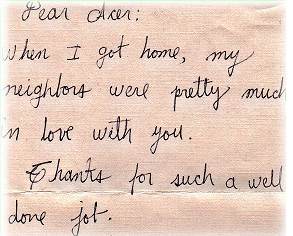 Dear Acer:
When I got home, my
neighbors were pretty much
in love with you.
Thanks for such a well
done job.